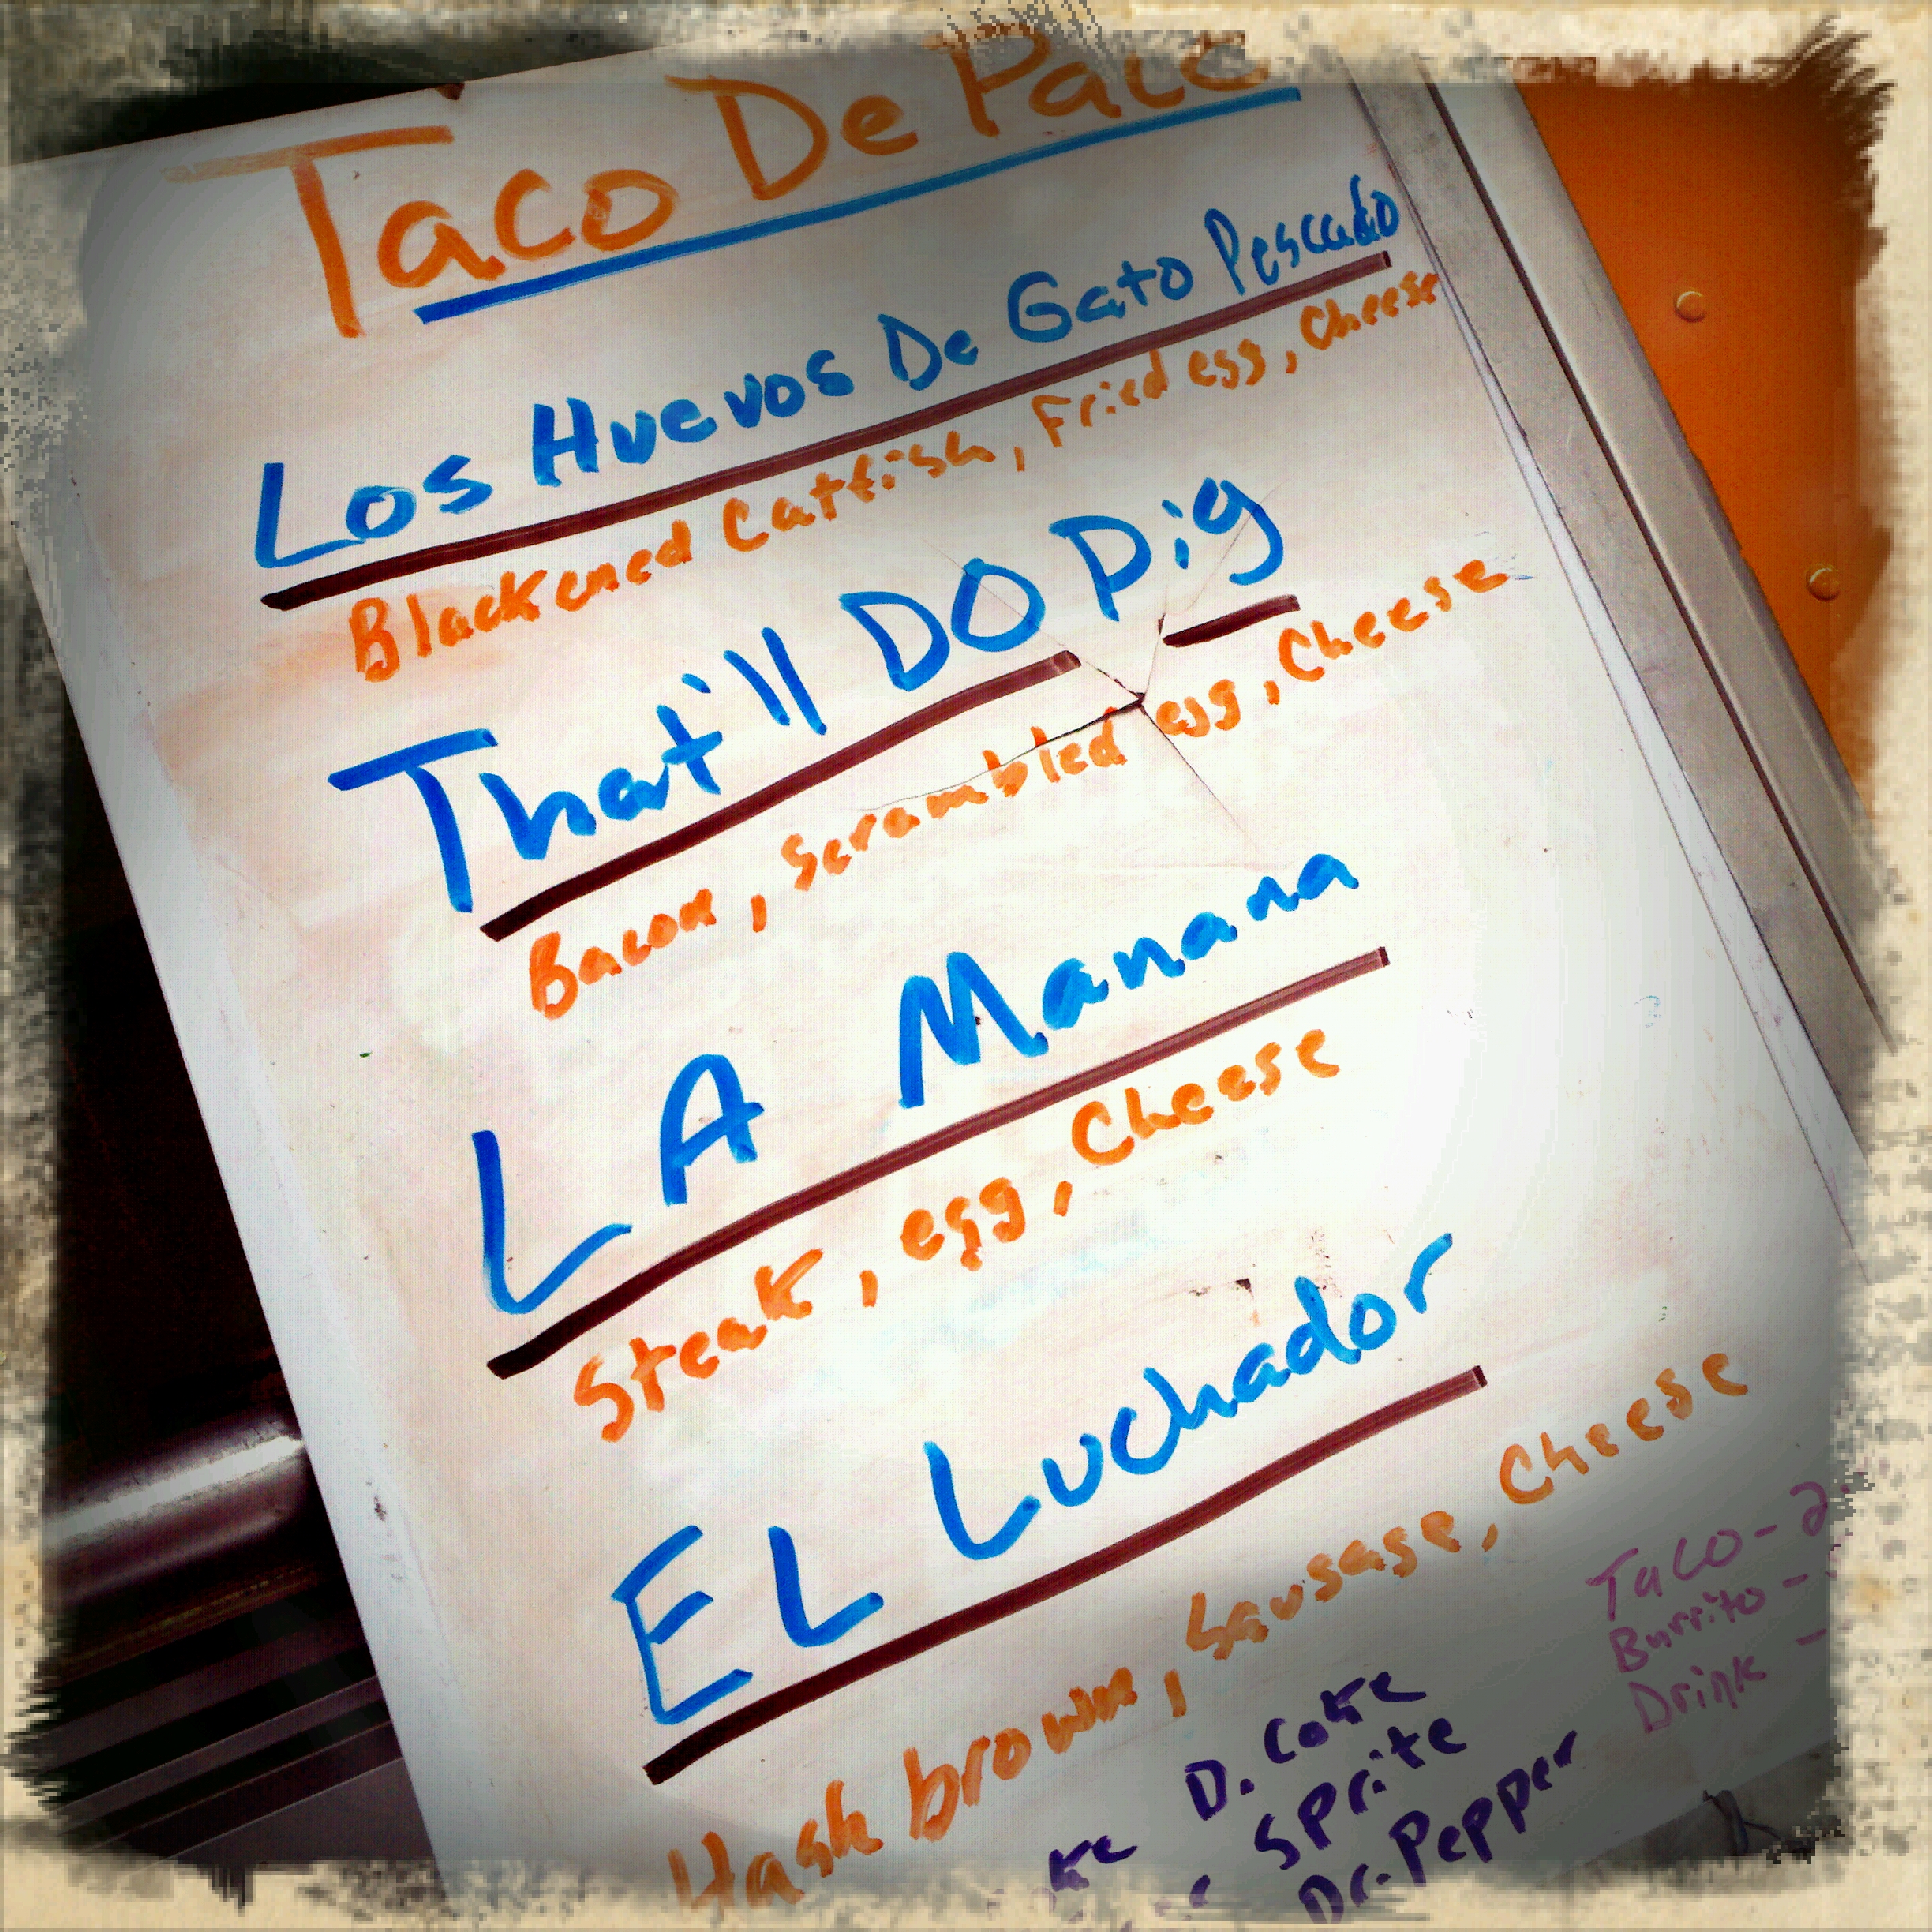 Taco De Paco
Los Huevos De Gato Pescado
Blackened Catfish, Fried egg, Cheese
That'll DO Pig
Bacon, Scrambled egg, Cheese
LA Manana
Steak, egg, Cheese
EL Luchador
Hash brown, Sausage, Cheese
Taco - 2
Burrito -
Drink -
D. Coke
Sprite
Dr. Pepper